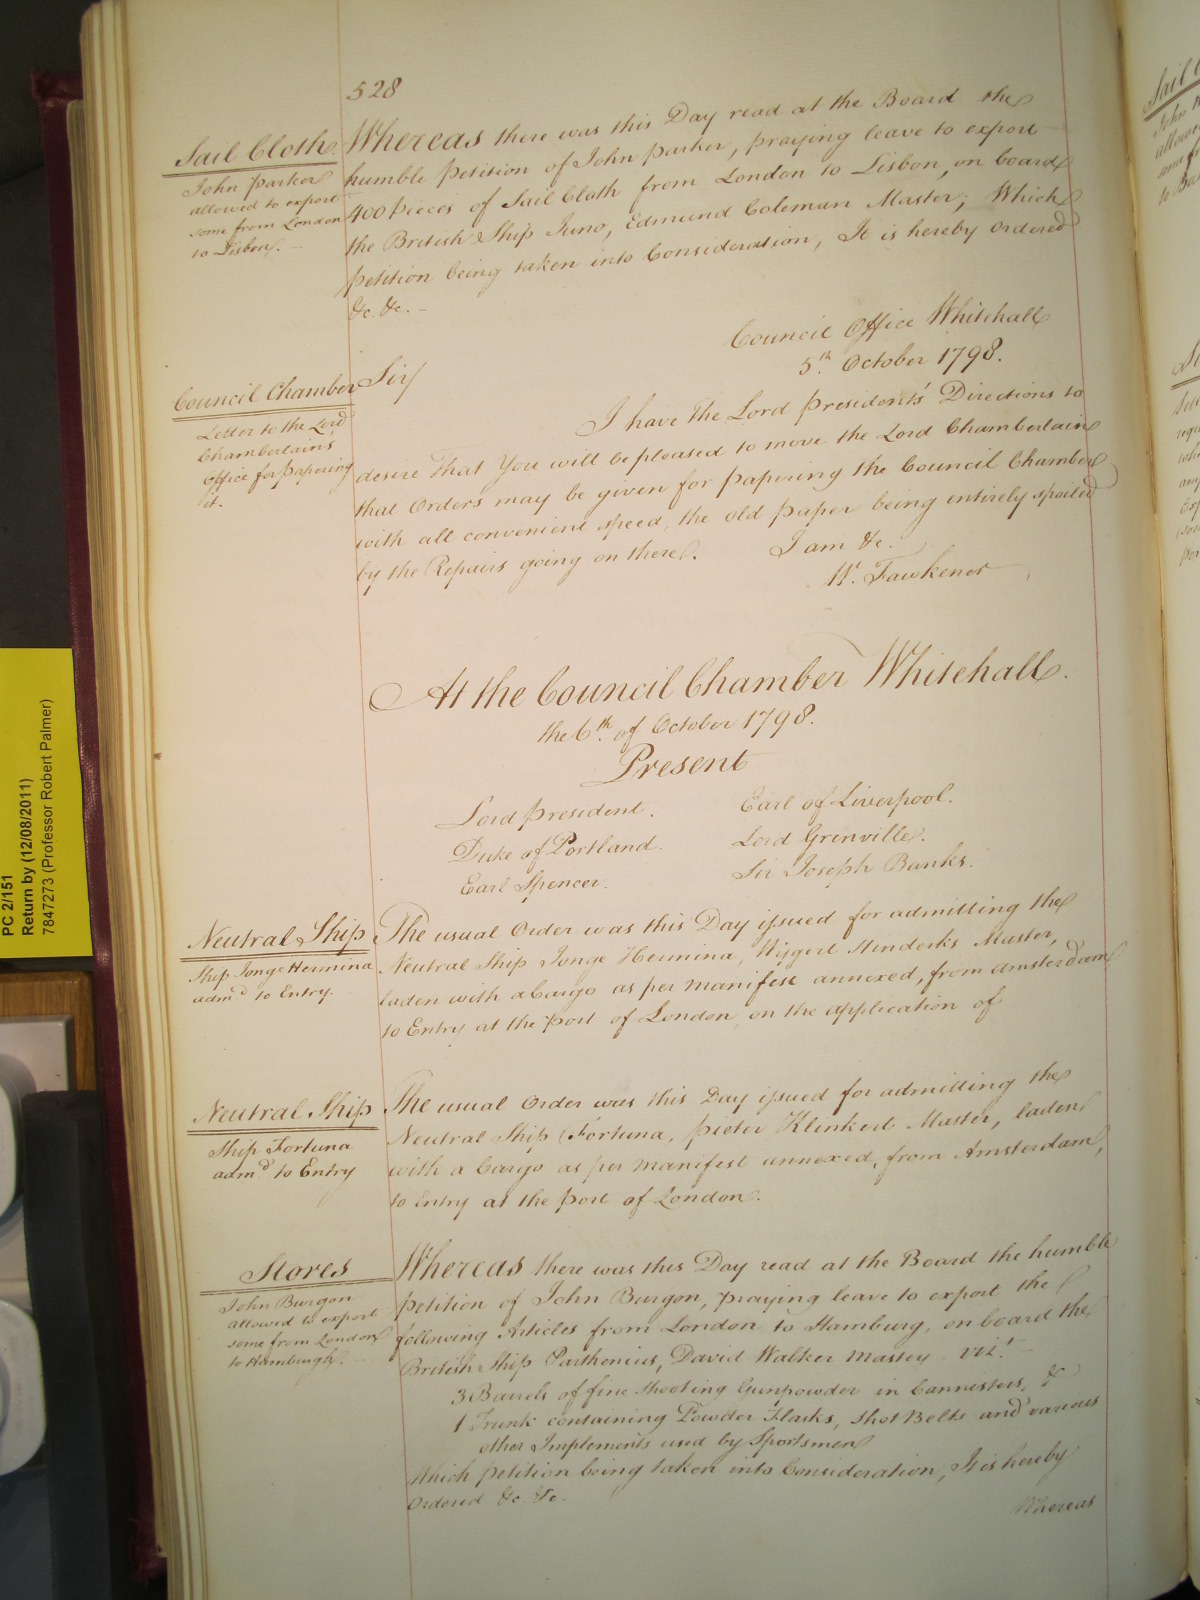 528
Sail Cloth
John Parker
allowed to export
some from London
to Lisbon.
Whereas there was this Day read at the Board the
humble Petition of John Parker, praying leave to export
400 Pieces of Sail Cloth from London to Lisbon, on board
the British Ship Juno, Edmund Coleman Master; Which
Petition being taken into Consideration, It is hereby ordered
&c. &c.
Council Office Whitehall
5th. October 1798.
Council Chamber
Letter to the Lord
Chamberlain's
Office for papering
it.
Sir/
I have the Lord President's Directions to
desire That You will be pleased to move the Lord Chamberlain
that Orders may be given for papering the Council Chamber
with all convenient speed, the old paper being entirely spoiled
by the Repairs going on there. I am &c.
W. Fawkener
At the Council Chamber Whitehall.
the 6th. of October 1798.
Present
Lord President. Earl of Liverpool.
Duke of Portland. Lord Grenville.
Earl Spencer. Sir Joseph Banks.
Neutral Ship
Ship Jonge Hermina
admd. to Entry.
The usual Order was this Day issued for admitting the
Neutral Ship Jonge Hermina, Hinderks Master,
laden with a Cargo as per Manifest annexed, from Amsterdam
to Entry at the Port of London, on the application of
Neutral Ship
Ship Fortuna
admd. to Entry
The usual Order was this Day issued for admitting the
Neutral Ship Fortuna, Pieter Klinkert Master, laden
with a Cargo as per Manifest annexed, from Amsterdam,
to Entry at the Port of London.
Stores
John Burgon
allowed to export
some from London
to Hamburgh.
Whereas there was this Day read at the Board the humble
Petition of John Burgon, praying leave to export the
following Articles from London to Hamburg, on board the
British Ship Parthenius, David Walker Master vizt.
3 Barrels of fine shooting Gunpowder in Cannisters, &
1 Trunk containing Powder Flasks, Shot Belts and various
other Implements used by Sportsmen
Which Petition being taken into Consideration, It is hereby
Ordered &c. &c.
Whereas
PC 2/151
Return by (12/08/2011)
7847273 (Professor Robert Palmer)